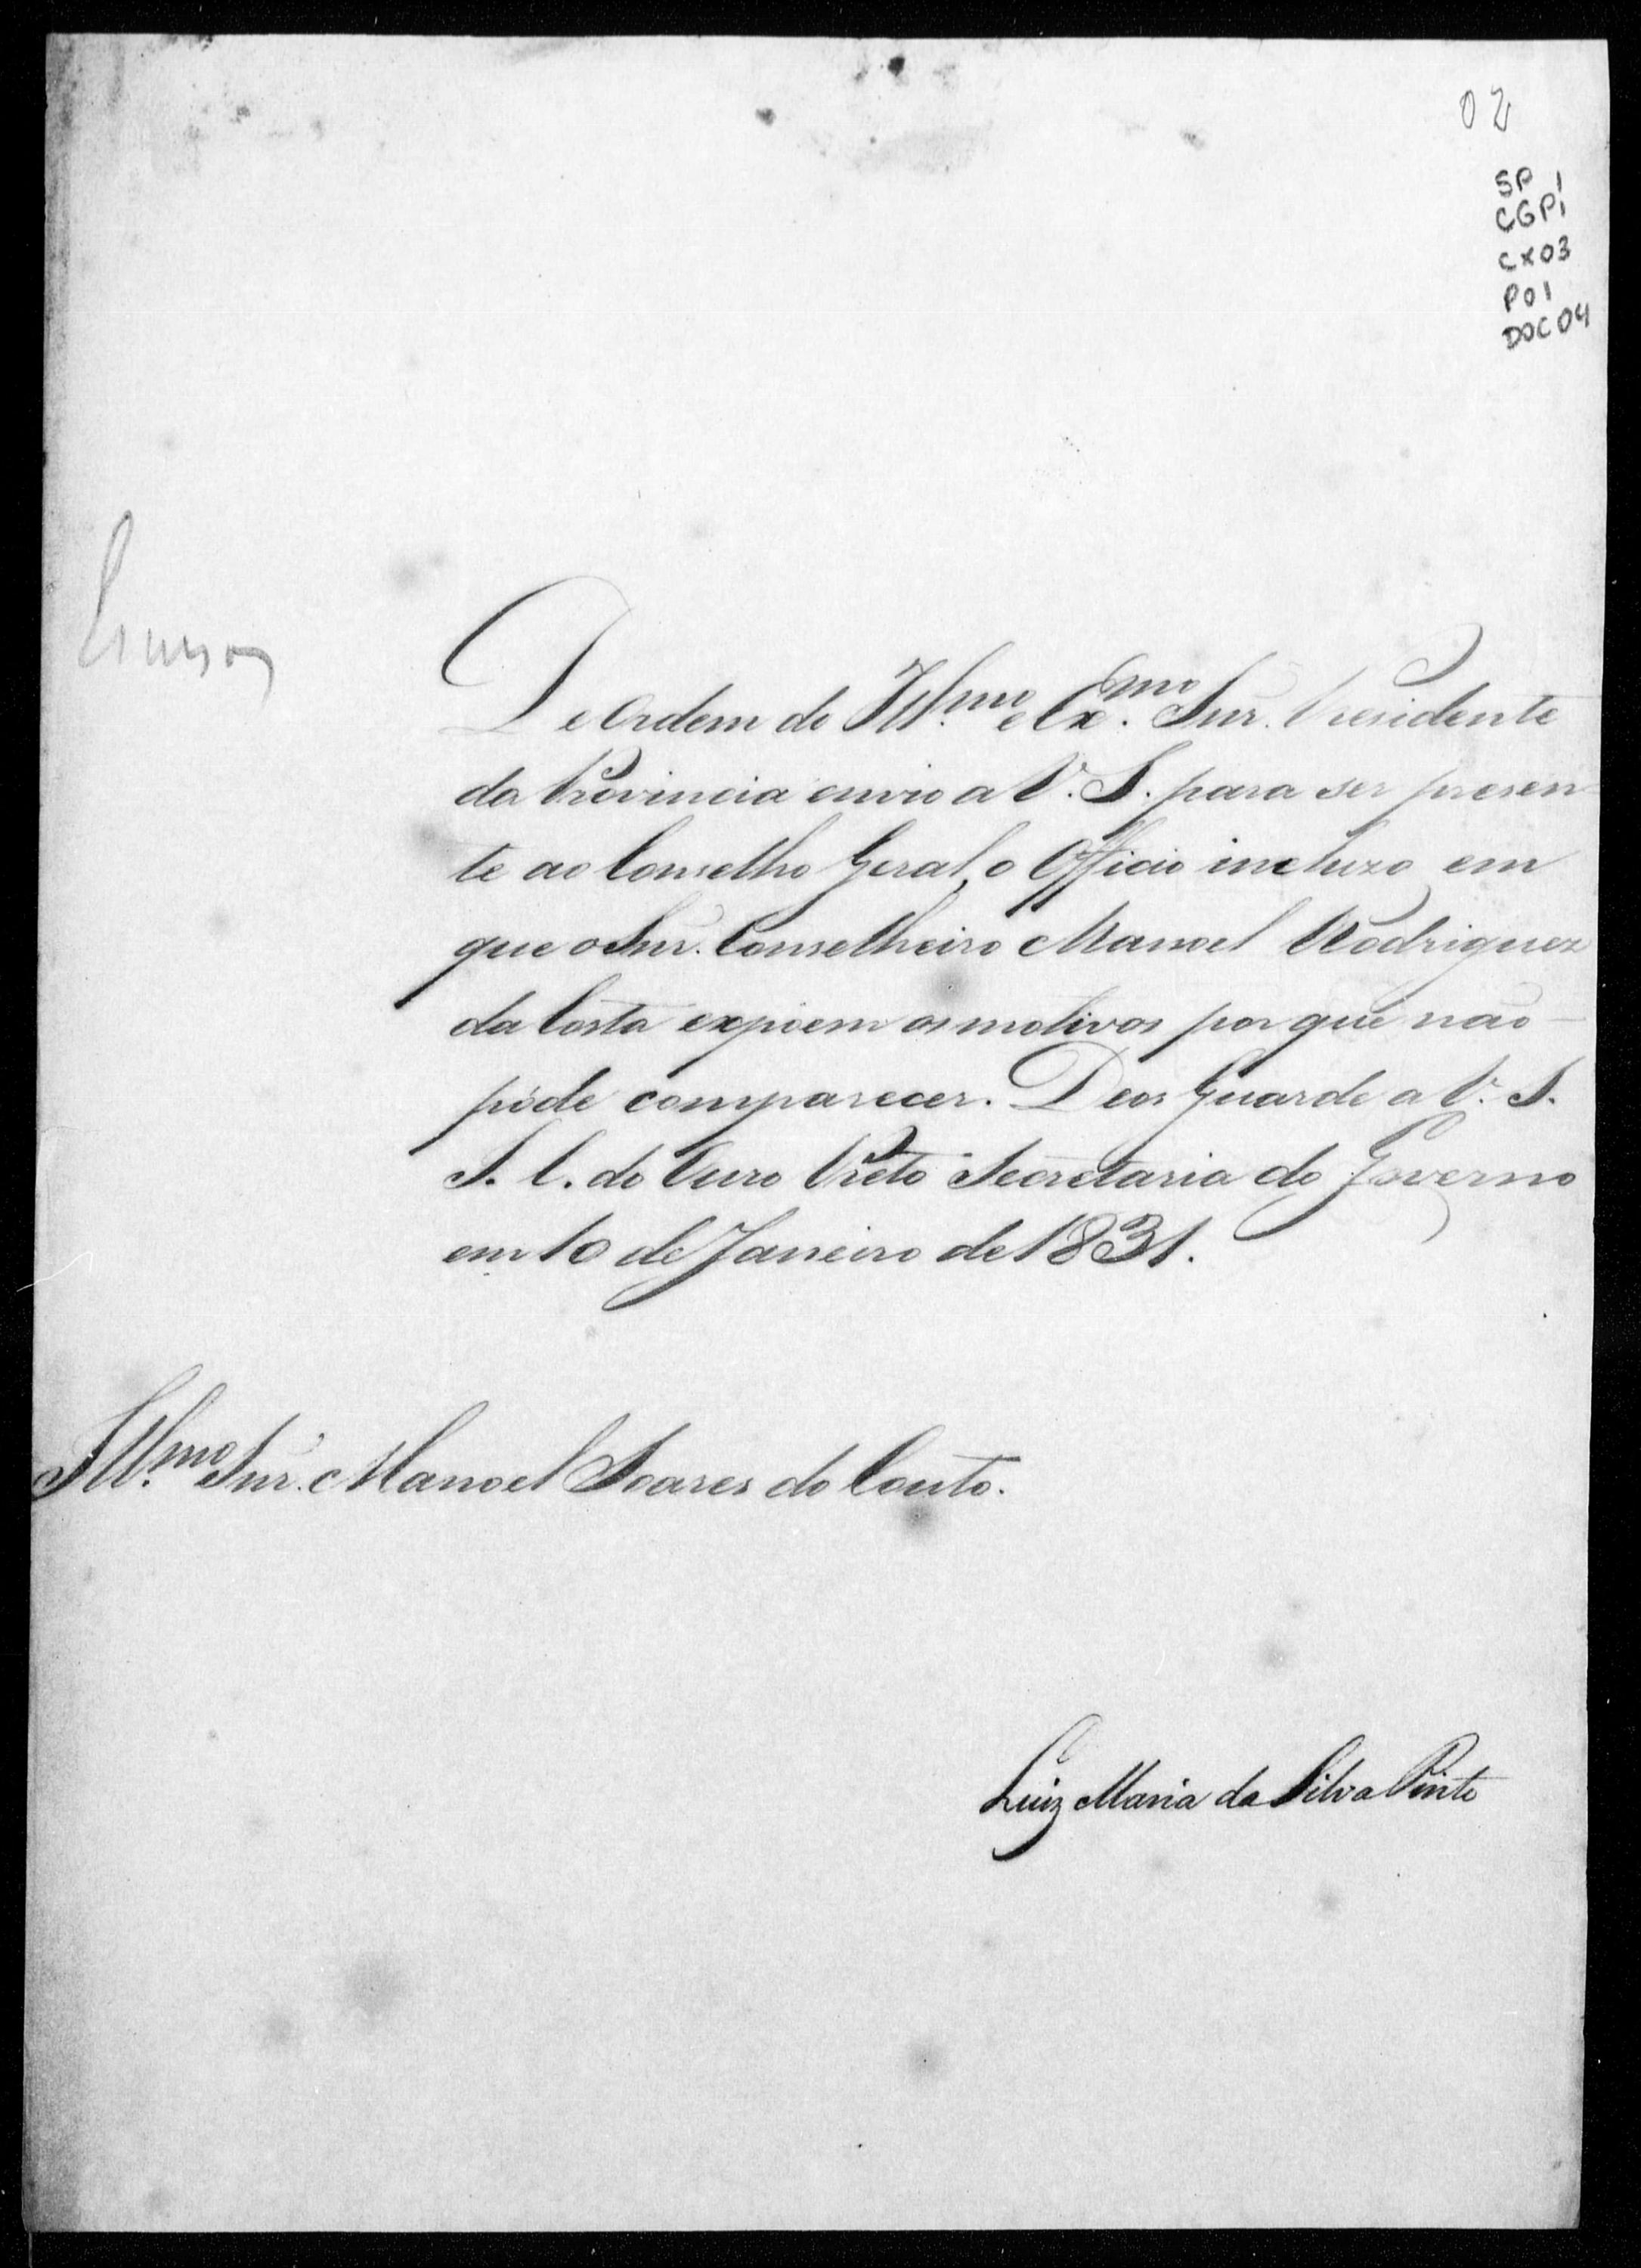 02
SP 1
CGP1
CX03
P01
DOC 04
De Ordem do Ill.mo e Ex.mo Snr. Presidente
da Provincia envio a V. S. para ser presen
te ao Conselho Geral, o Officio incluzo em
que o Snr. Conselheiro Manoel Rodriguez
da Costa expoem os motivos por que não
póde comparecer. Deos Guarde a V. S.
I. C. do Ouro Preto Secretaria do Governo
em 10 de Janeiro de 1831.
Ill.mo Snr. Manoel Soares do Couto.
Luiz Maria da Silva Pinto